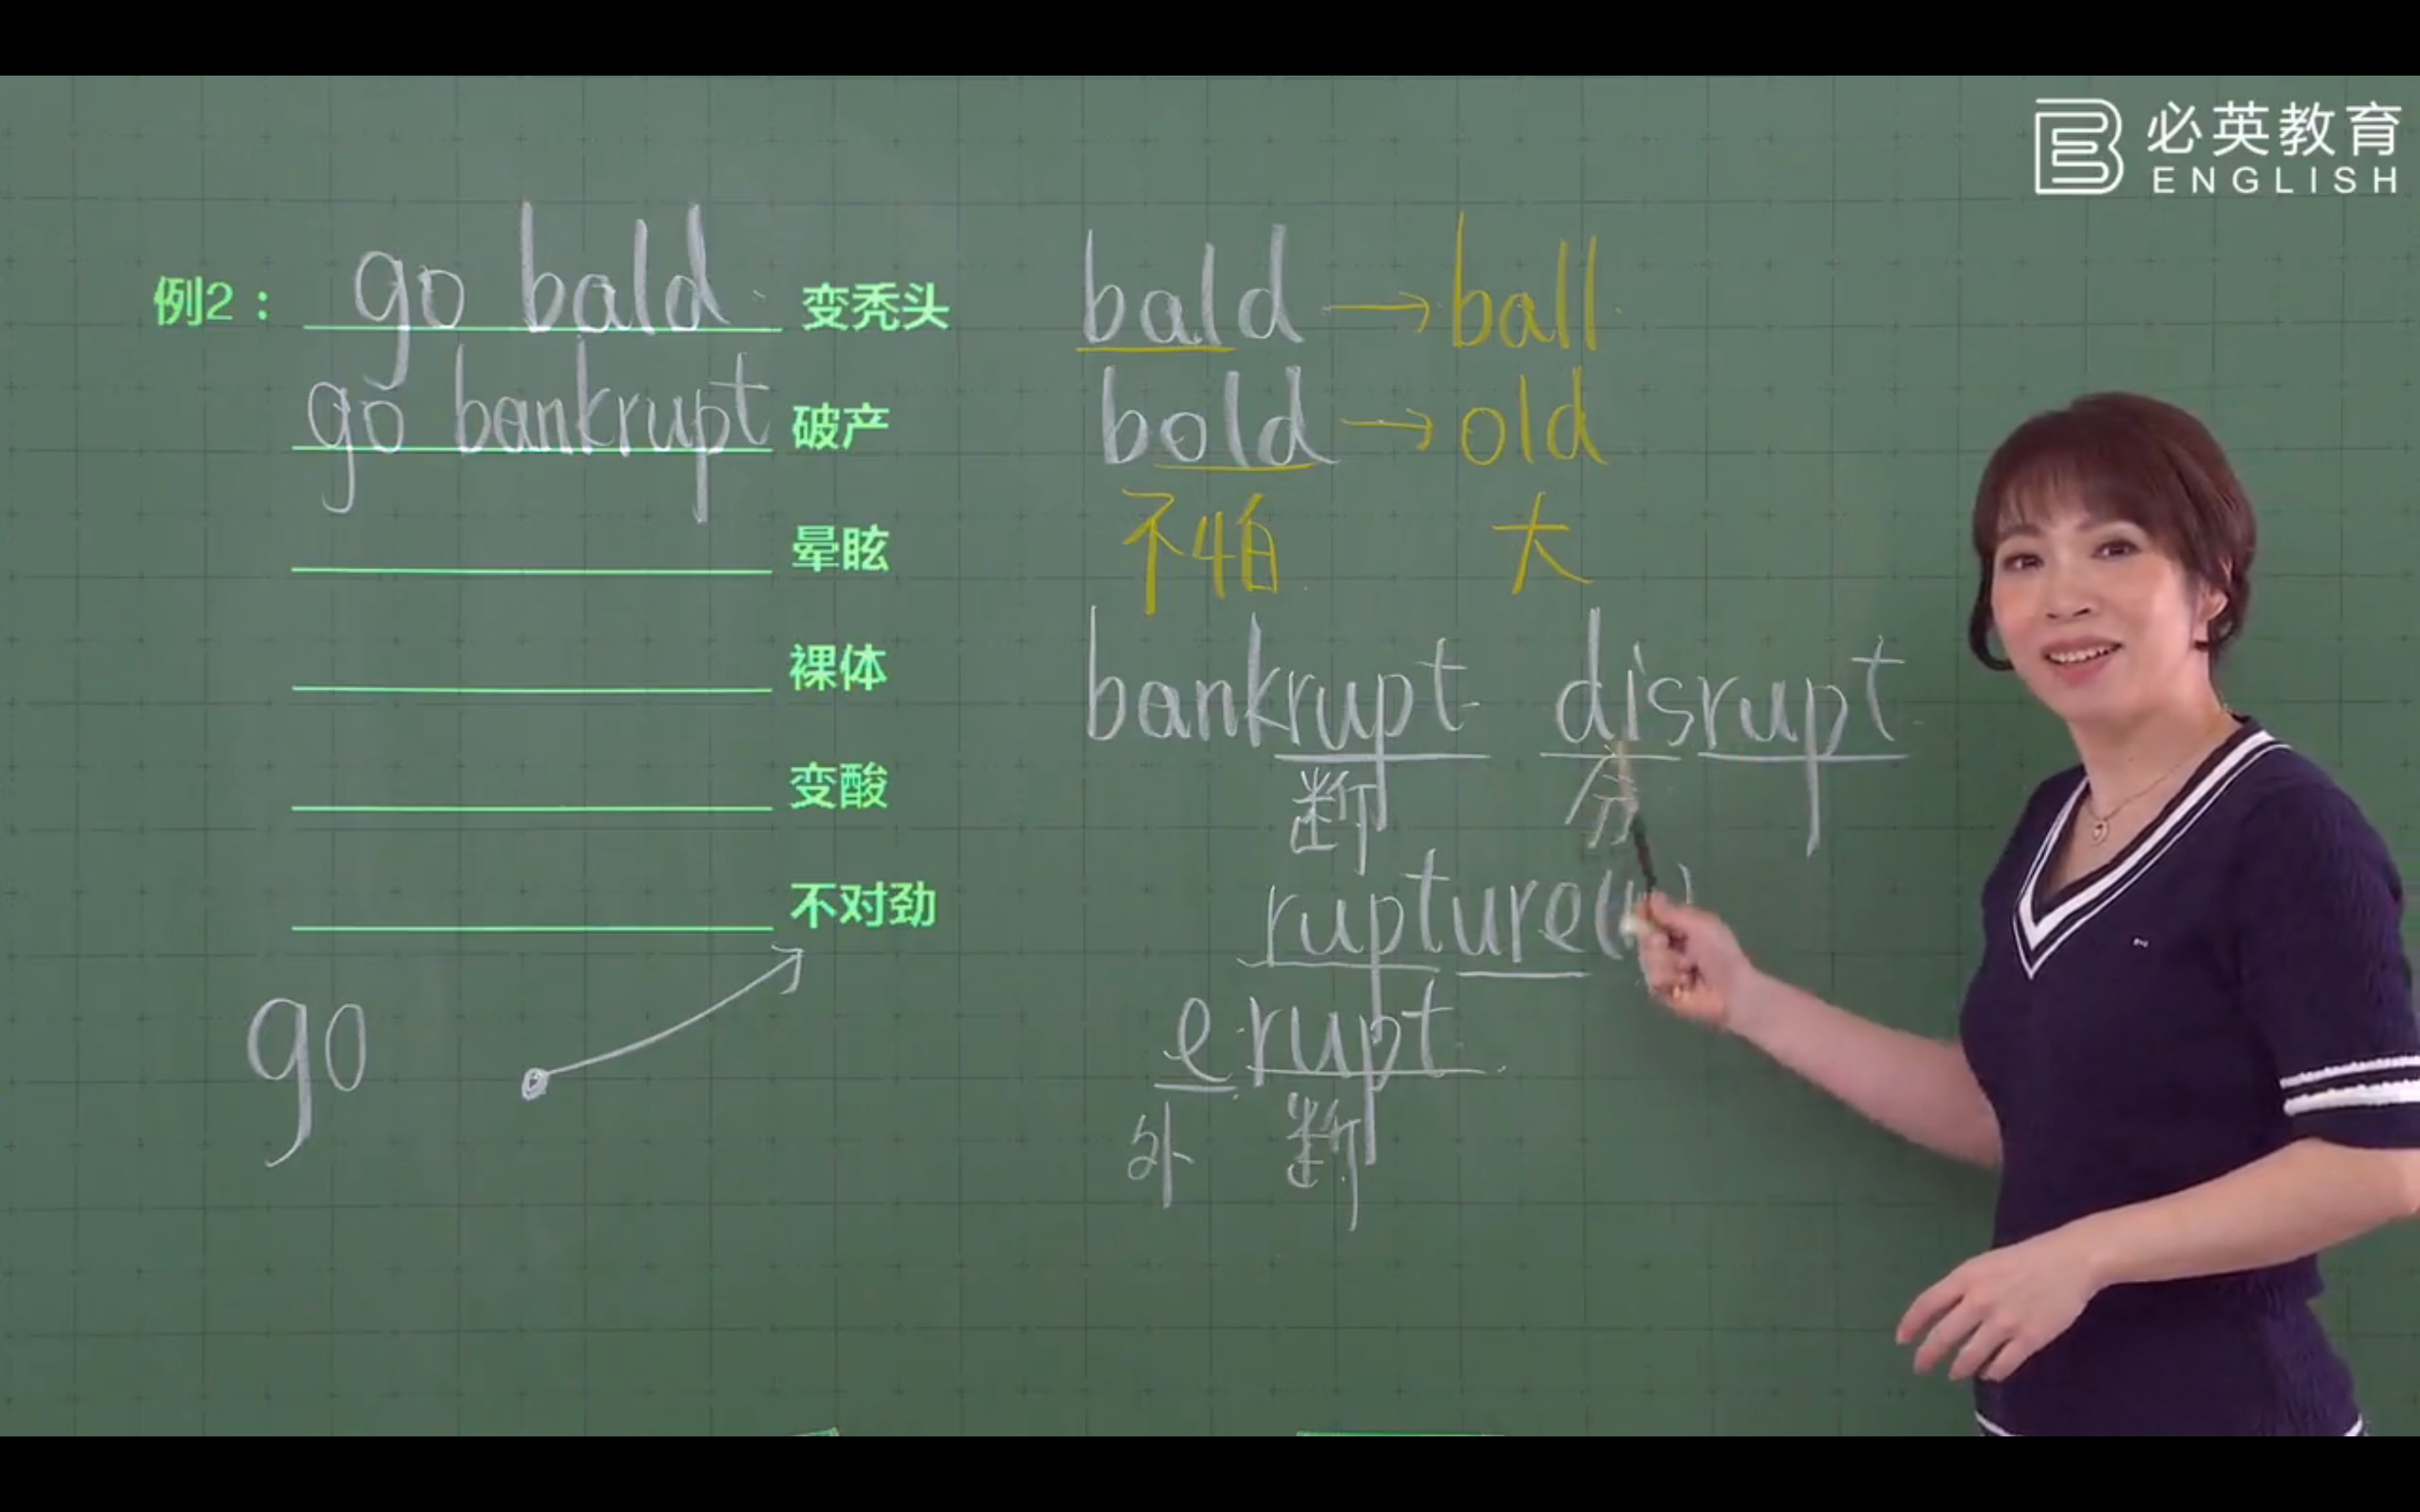 必英教育
ENGLISH
例2： go bald 变秃头
go bankrupt 破产
晕眩
裸体
变酸
不对劲
go
bald → ball
bold → old
不怕 大
bankrupt disrupt
断 分
rupture
erupt
外 断